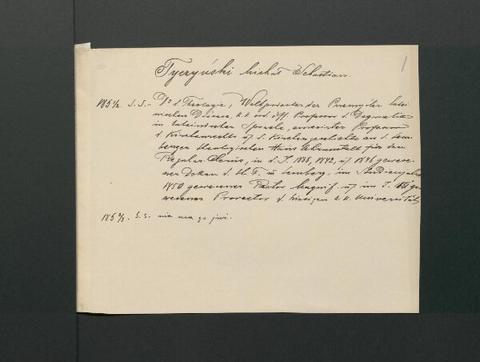 Tyczyński Michał Sebastian
1
185½ S.S. - Dr d. Theologie, Weltpriester der Przemysler latei-
nischen Diöcese, k. k. ord. öff. Professor d. Dogmatik
in lateinischer Sprache, emeritirter Professor
d. Kirchenrechts u. d. Kirchengeschichte an d. Lem-
berger theologischen Haus Lehranstalt für den
Regular Clerus, in d. J. 1842, gewese-
ner Dekan d. th. F. in Lemberg, im Studienjahre
1850 gewesener Rector Magnif. im J.
wesener Prorector d. hiesigen k. k. Universität
S.S. nie ma go już.